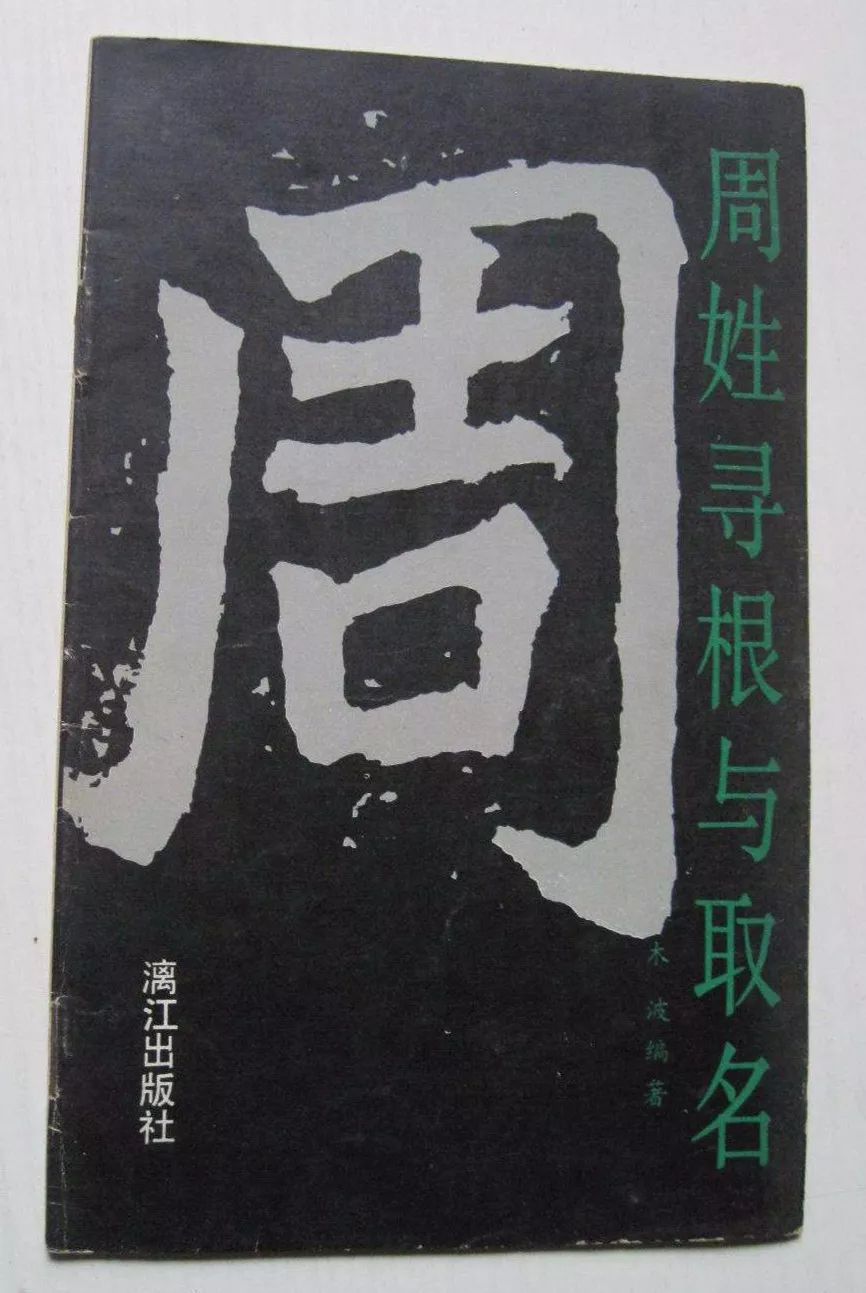 周
周姓寻根与取名
木波编著
漓江出版社